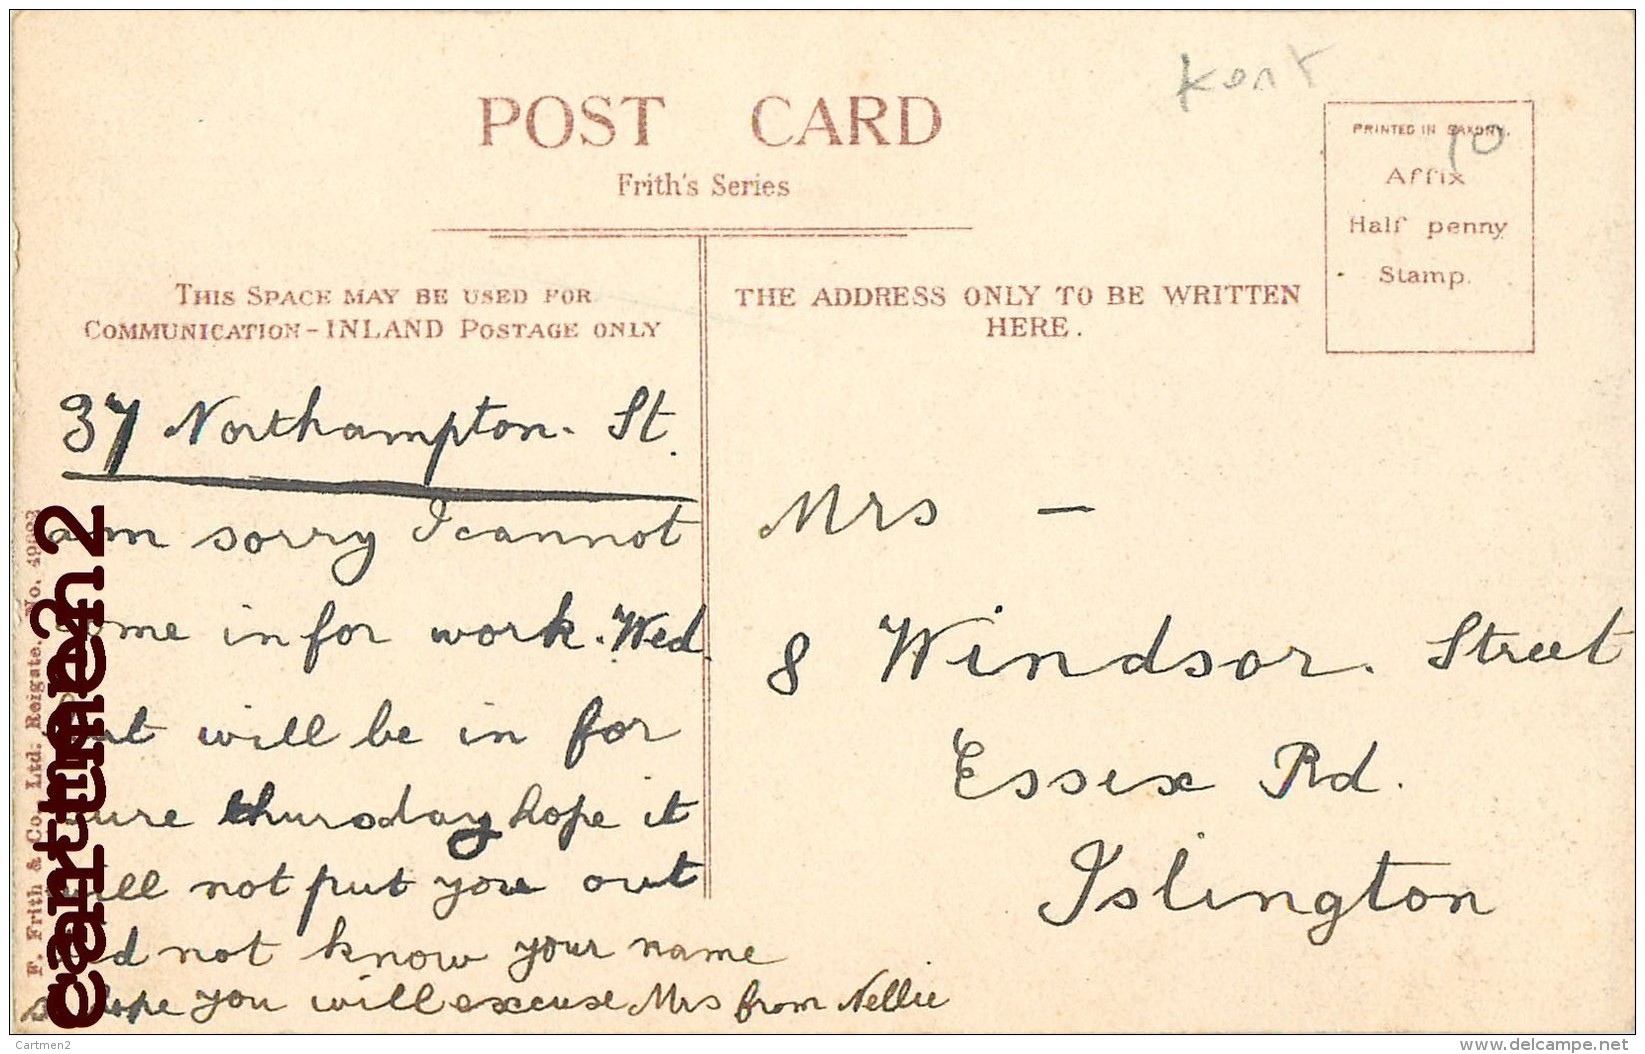 Kent
POST CARD
Frith's Series
PRINTED IN SAXONY.
10
Affix
Half penny
Stamp.
THIS SPACE MAY BE USED FOR
COMMUNICATION-INLAND POSTAGE ONLY
THE ADDRESS ONLY TO BE WRITTEN
HERE.
37 Northampton. St.
am sorry I cannot
come in for work. Wed
but will be in for
sure thursday hope it
will not put you out
did not know your name
so hope you will excuse Mrs from Nellie
Mrs —
8 Windsor. Street
Essex Rd.
Islington
F. Frith & Co., Ltd. Reigate. No.
cartmen2
Cartmen2
www.delcampe.net